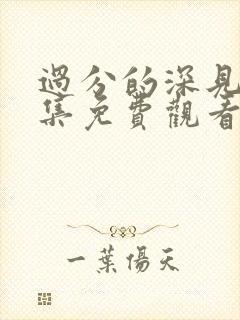 過分的深見
集免費觀看
一葉傷天